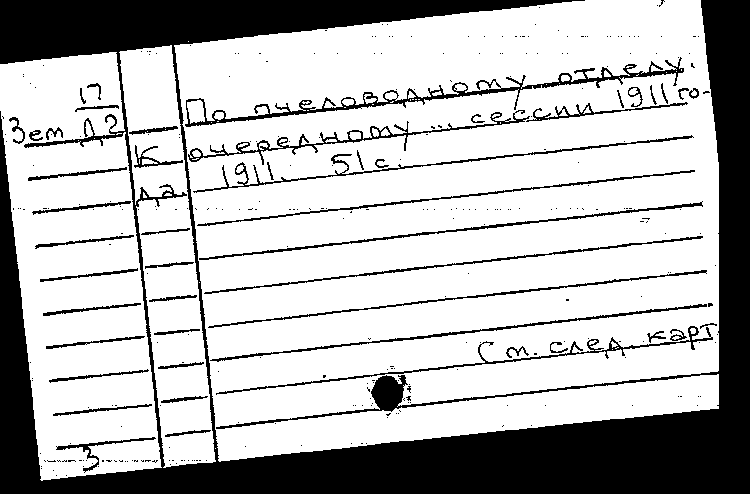 17
Зет Д2
По пчеловодному отделу.
К очередному ... сессии 1911 го-
да. 1911. 51 с.
См. след. карт
3